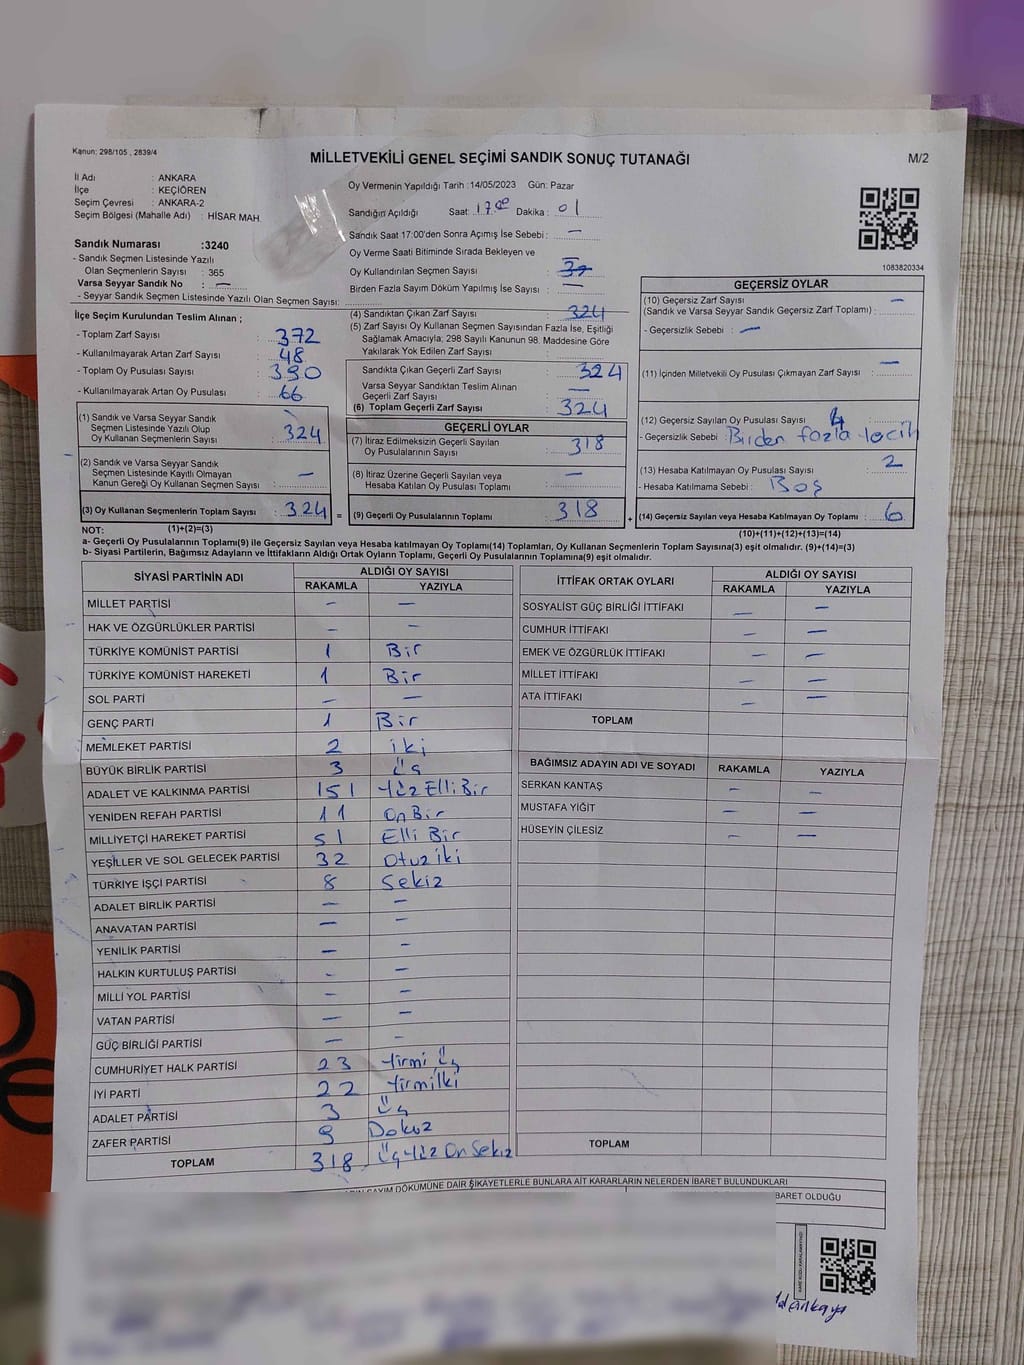 Kanun: 298/105 , 2839/4
MİLLETVEKİLİ GENEL SEÇİMİ SANDIK SONUÇ TUTANAĞI
M/2
İl Adı : ANKARA
İlçe : KEÇİÖREN
Seçim Çevresi : ANKARA-2
Seçim Bölgesi (Mahalle Adı) : HİSAR MAH.
Sandık Numarası :3240
- Sandık Seçmen Listesinde Yazılı
Olan Seçmenlerin Sayısı : 365
Varsa Seyyar Sandık No : —
- Seyyar Sandık Seçmen Listesinde Yazılı Olan Seçmen Sayısı:
Oy Vermenin Yapıldığı Tarih :14/05/2023 Gün: Pazar
Sandığın Açıldığı Saat : 17:00 Dakika : 01
Sandık Saat 17:00'den Sonra Açımış İse Sebebi : —
Oy Verme Saati Bitiminde Sırada Bekleyen ve
Oy Kullandırılan Seçmen Sayısı :
Birden Fazla Sayım Döküm Yapılmış İse Sayısı : —
1083820334
İlçe Seçim Kurulundan Teslim Alınan ;
- Toplam Zarf Sayısı : 372
- Kullanılmayarak Artan Zarf Sayısı : 48
- Toplam Oy Pusulası Sayısı : 390
- Kullanılmayarak Artan Oy Pusulası : 66
(1) Sandık ve Varsa Seyyar Sandık
Seçmen Listesinde Yazılı Olup
Oy Kullanan Seçmenlerin Sayısı : 324
(2) Sandık ve Varsa Seyyar Sandık
Seçmen Listesinde Kayıtlı Olmayan
Kanun Gereği Oy Kullanan Seçmen Sayısı : —
(3) Oy Kullanan Seçmenlerin Toplam Sayısı : 324 =
(4) Sandıktan Çıkan Zarf Sayısı : 324
(5) Zarf Sayısı Oy Kullanan Seçmen Sayısından Fazla İse, Eşitliği
Sağlamak Amacıyla; 298 Sayılı Kanunun 98. Maddesine Göre
Yakılarak Yok Edilen Zarf Sayısı :
Sandıkta Çıkan Geçerli Zarf Sayısı : 324
Varsa Seyyar Sandıktan Teslim Alınan
Geçerli Zarf Sayısı : —
(6) Toplam Geçerli Zarf Sayısı : 324
GEÇERLİ OYLAR
(7) İtiraz Edilmeksizin Geçerli Sayılan
Oy Pusulalarının Sayısı : 318
(8) İtiraz Üzerine Geçerli Sayılan veya
Hesaba Katılan Oy Pusulası Toplamı : —
(9) Geçerli Oy Pusulalarının Toplamı : 318 +
GEÇERSİZ OYLAR
(10) Geçersiz Zarf Sayısı —
(Sandık ve Varsa Seyyar Sandık Geçersiz Zarf Toplamı) :
- Geçersizlik Sebebi : —
(11) İçinden Milletvekili Oy Pusulası Çıkmayan Zarf Sayısı : —
(12) Geçersiz Sayılan Oy Pusulası Sayısı : 4
- Geçersizlik Sebebi : Birden fazla tercih
(13) Hesaba Katılmayan Oy Pusulası Sayısı : 2
- Hesaba Katılmama Sebebi : Boş
(14) Geçersiz Sayılan veya Hesaba Katılmayan Oy Toplamı : 6
NOT: (1)+(2)=(3)
(10)+(11)+(12)+(13)=(14)
a- Geçerli Oy Pusulalarının Toplamı(9) ile Geçersiz Sayılan veya Hesaba katılmayan Oy Toplamı(14) Toplamları, Oy Kullanan Seçmenlerin Toplam Sayısına(3) eşit olmalıdır. (9)+(14)=(3)
b- Siyasi Partilerin, Bağımsız Adayların ve İttifakların Aldığı Ortak Oyların Toplamı, Geçerli Oy Pusulalarının Toplamına(9) eşit olmalıdır.
SİYASİ PARTİNİN ADI ALDIĞI OY SAYISI
RAKAMLA YAZIYLA
MİLLET PARTİSİ — —
HAK VE ÖZGÜRLÜKLER PARTİSİ — —
TÜRKİYE KOMÜNİST PARTİSİ 1 Bir
TÜRKİYE KOMÜNİST HAREKETİ 1 Bir
SOL PARTİ — —
GENÇ PARTİ 1 Bir
MEMLEKET PARTİSİ 2 iki
BÜYÜK BİRLİK PARTİSİ 3 üç
ADALET VE KALKINMA PARTİSİ 151 Yüz Elli Bir
YENİDEN REFAH PARTİSİ 11 On Bir
MİLLİYETÇİ HAREKET PARTİSİ 51 Elli Bir
YEŞİLLER VE SOL GELECEK PARTİSİ 32 Otuz iki
TÜRKİYE İŞÇİ PARTİSİ 8 Sekiz
ADALET BİRLİK PARTİSİ — —
ANAVATAN PARTİSİ — —
YENİLİK PARTİSİ — —
HALKIN KURTULUŞ PARTİSİ — —
MİLLİ YOL PARTİSİ — —
VATAN PARTİSİ — —
GÜÇ BİRLİĞİ PARTİSİ — —
CUMHURİYET HALK PARTİSİ 23 Yirmi üç
İYİ PARTİ 22 Yirmi İki
ADALET PARTİSİ 3 Üç
ZAFER PARTİSİ 9 Dokuz
TOPLAM 318 Üç Yüz On Sekiz
İTTİFAK ORTAK OYLARI ALDIĞI OY SAYISI
RAKAMLA YAZIYLA
SOSYALİST GÜÇ BİRLİĞİ İTTİFAKI — —
CUMHUR İTTİFAKI — —
EMEK VE ÖZGÜRLÜK İTTİFAKI — —
MİLLET İTTİFAKI — —
ATA İTTİFAKI — —
TOPLAM
BAĞIMSIZ ADAYIN ADI VE SOYADI RAKAMLA YAZIYLA
SERKAN KANTAŞ — —
MUSTAFA YİĞİT — —
HÜSEYİN ÇİLESİZ — —
TOPLAM
SAYIM DÖKÜMÜNE DAİR ŞİKAYETLERLE BUNLARA AİT KARARLARIN NELERDEN İBARET BULUNDUKLARI
BARET OLDUĞU